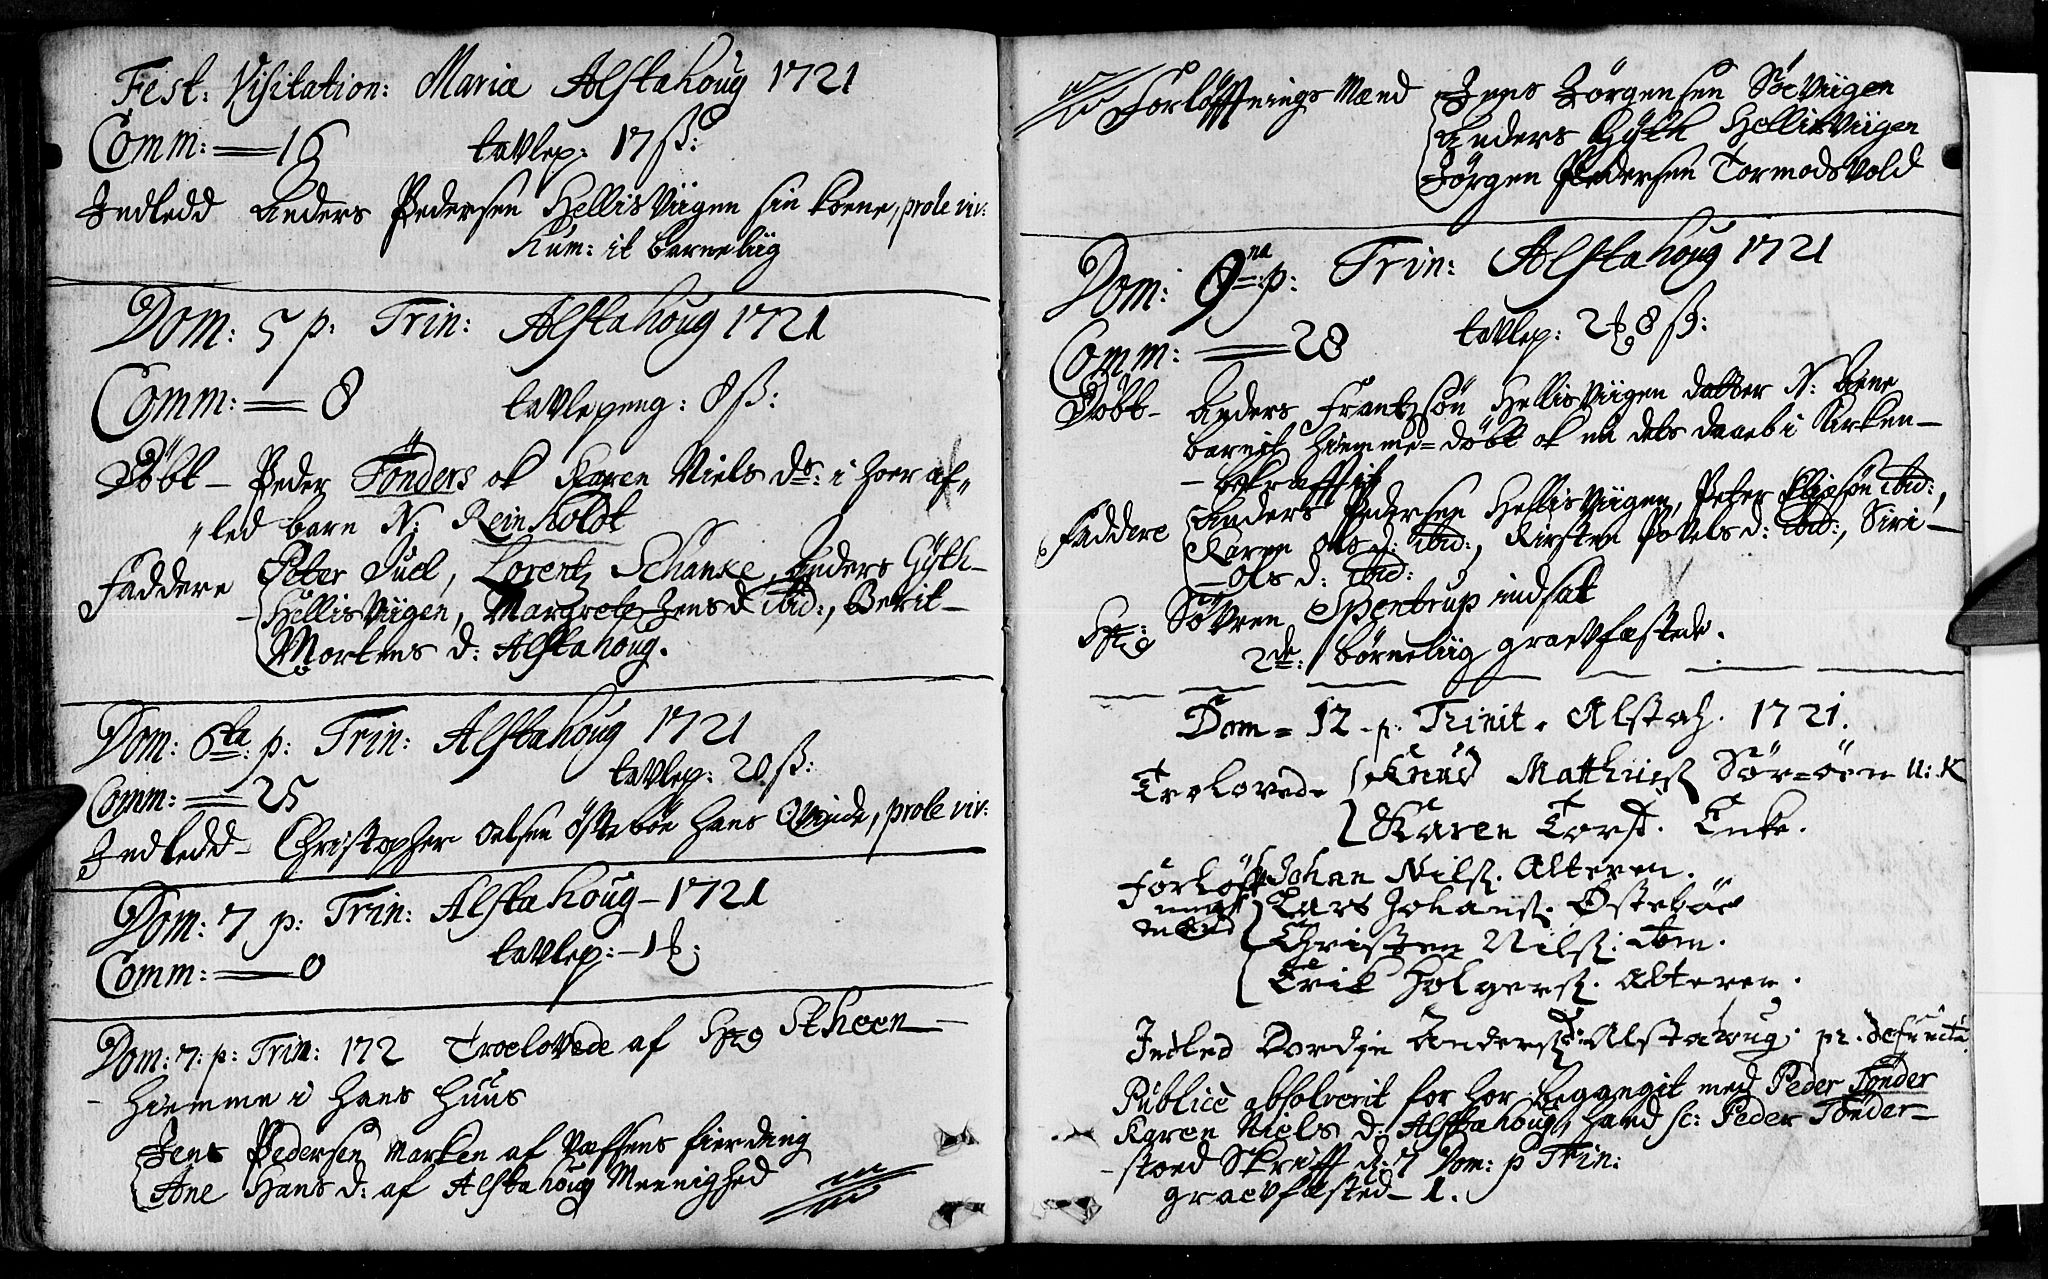 Fest: Visitation: Mariæ Alstahoug 1721
Comm: = 16 tavlep: 17 ß:
Indledd Anders Pedersen HellisViigen sin kone, prole viv:
hum: it barneliig
Dom: 5 p: Trin: Alstahoug 1721
Comm: = 8 tavlepeng: 8 ß:
Döbt – Peder Tönders ok Karen Niels ds: i hoer af„
„led barn N: Reinholdt
Faddere Peter Juel, Lorentz Schanke, Anders Gÿth –
– HellisViigen, Margrete Jensd ibid:, Berit –
Mortens d: Alstahoug.
Dom: 6ta: p: Trin: Alstahoug 1721
Comm: = 25 tavlep: 20 ß:
Indledd – Christopher Oelsen Östeböe hans Qvinde, prole viv:
Dom: 7 p: Trin: Alstahoug – 1721
Comm: = 0 tavlep: – 1
Dom: 7: p: Trin: 172 Troelovede af Stheen –
– hiemme i hans Huus
Jens Pedersen Marken af fierding
Ane Hans d: af Alstahoug Meenighed
Forlöffnings Mænd Jens Jörgensen SöeViigen
Anders Gÿth HellisViigen
Jörgen Pedersen Tormodsvold
Dom: 9na: p: Trin: Alstahoug 1721
Comm: = 28 tavlep: 2 8 ß:
Döbt – Anders Frantzsön HellisViigen datter N: Ane
barnit hiemme = döbt ok nu dets daab i Kirken –
– bekrafftit
Faddere Anders Pedersen HellisViigen, Peter ibid:,
Karen Ols d: ibid:, Kirsten Povels d: ibid:, Siri –
– Ols d: ibid:
Söfren Spentrup indsat
2de: börneliig graevfæstede.
Dom = 12 - p. Trinit. Alstah. 1721.
Trolovede Knud Matthiesß Sör=öen U: K
Karen Torsd. Enke.
Forlöff Johan Nilsß. Alteren.
nings Lars Johansß. Östeböe
mænd Christen Nilsß. ibm.
Erik Holgersß. Alteren.
Indled Dordje Andersd: Alstahoug; pr. defuncta.
Publicè absolverit for hor begangit med Peder Tönder
Karen Niels d: Alstahoug, hand sc: Peder Tönder –
– stoed Skrifft d: 7 Dom: p Trin:
graevfæsted – 1.